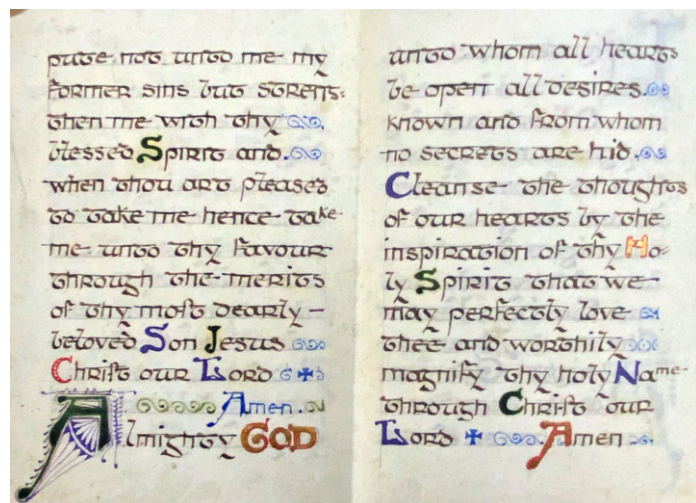 pute not unto me my
former sins but streng-
then me with thy
blessed Spirit and.
when thou art pleased
to take me hence take
me unto thy favour
through the merits
of thy most dearly –
beloved Son Jesus
Christ our Lord
Amen.
Almighty GOD
unto whom all hearts
be open all desires.
known and from whom
no secrets are hid.
Cleanse the thoughts
of our hearts by the
inspiration of thy Ho-
ly Spirit that we
may perfectly love
thee and worthily
magnify thy holy Name
through Christ our
Lord Amen